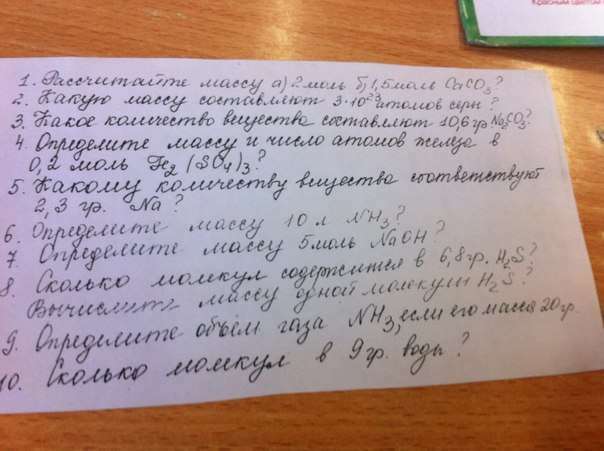 красным цветом
1. Рассчитайте массу а) 2 моль б) 1,5 моль CaCO3?
2. Какую массу составляют 3·10²³ атомов серы?
3. Какое количество вещества составляют 10,6 гр Na2CO3?
4. Определите массу и число атомов железа в
0,2 моль Fe2(SO4)3?
5. Какому количеству вещества соответствуют
2,3 гр. Na?
6. Определите массу 10 л NH3?
7. Определите массу 5 моль NaOH?
8. Сколько молекул содержится в 6,8 гр. H2S?
Вычислите массу одной молекулы H2S?
9. Определите объём газа NH3, если его масса 20 гр.
10. Сколько молекул в 9 гр. воды?